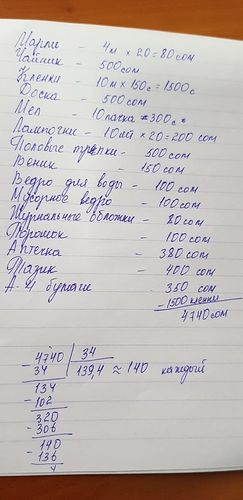 Марли - 4м × 20 = 80 сом
Чайник - 500 сом
Клеенки - 10м × 150с = 1500с
Доска - 500 сом
Мел - 10 пачка = 300с
Лампочки - 10шт × 20 = 200 сом
Половые тряпки - 500 сом
Веник - 150 сом
Ведро для воды - 100 сом
Мусорное ведро - 100 сом
Журнальные обложки - 80 сом
Порошок - 100 сом
Аптечка - 380 сом
Тазик - 400 сом
А-4 бумаги - 350 сом
- 1500 клеенки
4740 сом
- 4740 | 34
34 | 139,4 ≈ 140 каждый
134
- 102
320
- 306
140
136
4